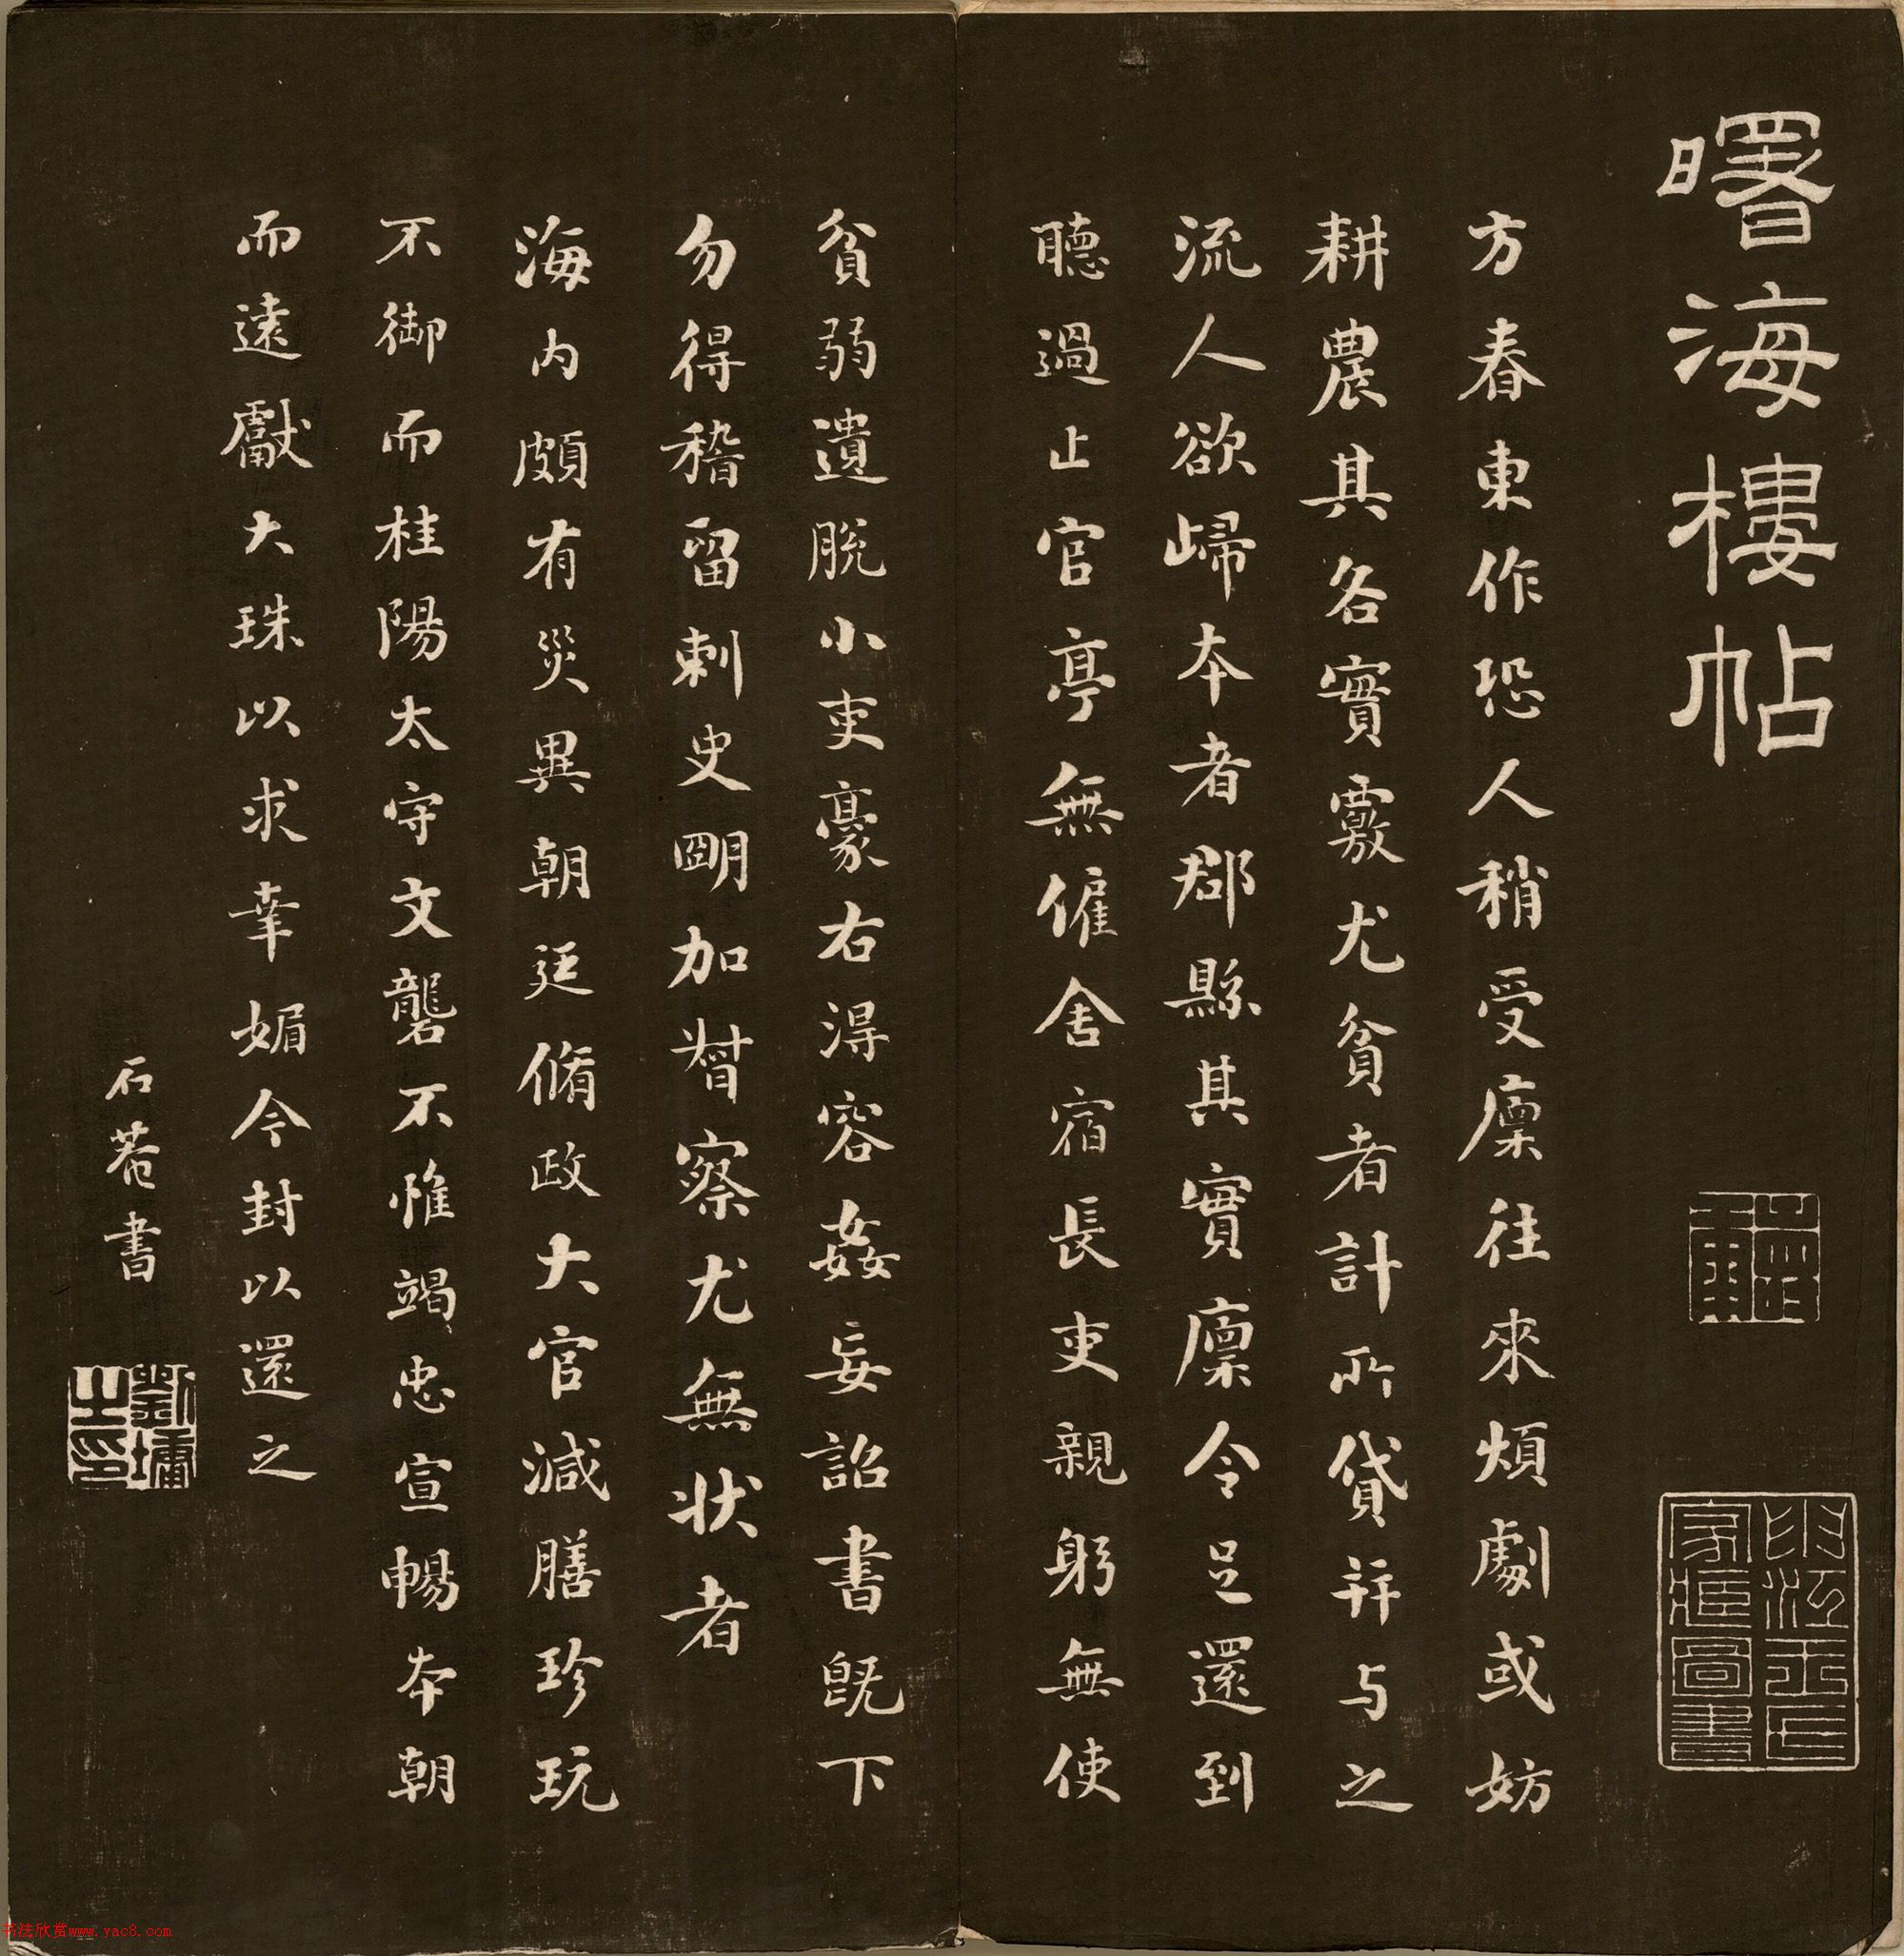 曙海樓帖
方春東作恐人稍受廩往來煩劇或妨
耕農其各實覈尤貧者計所貸并与之
流人欲歸本者郡縣其實廩令足還到
聽過止官亭無雇舍宿長吏親躬無使
貧弱遺脫小吏豪右得容姦妄詔書既下
勿得稽留刺史明加督察尤無狀者
海内頗有災異朝廷脩政大官減膳珍玩
不御而桂陽太守文礱不惟竭忠宣暢本朝
而遠獻大珠以求幸媚今封以還之
石菴書
劉墉之印
家藏圖書
书法欣赏www.yac8.com